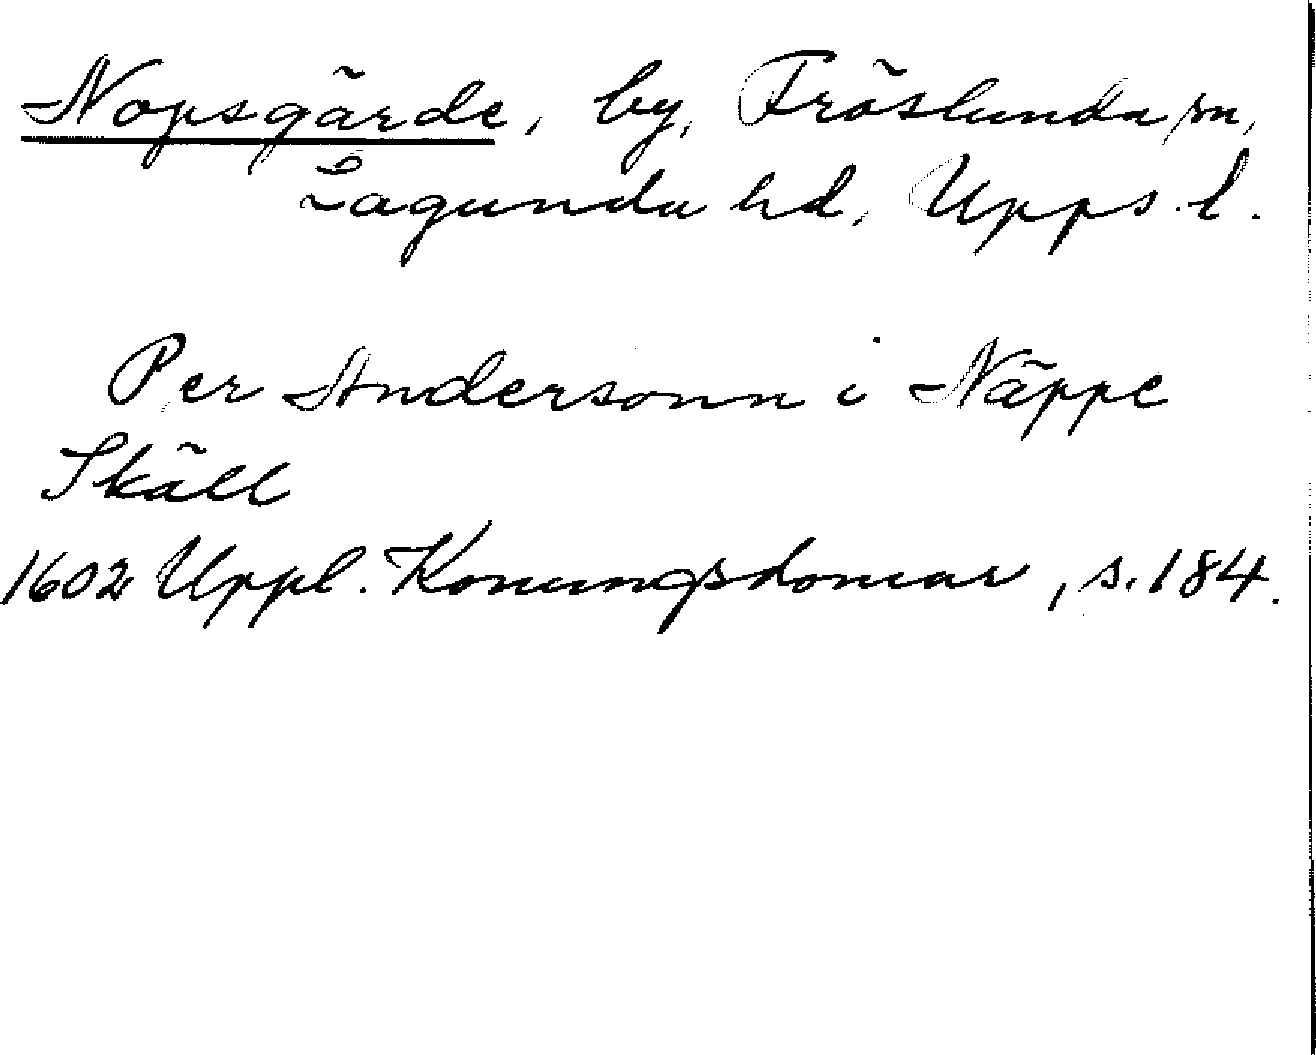 Nopsgärde, by, Fröslunda sn,
Lagunda hd, Upps. l.
Per Andersonn i Näppe
Skäll
1602 Uppl. Konungsdomar, s. 184.